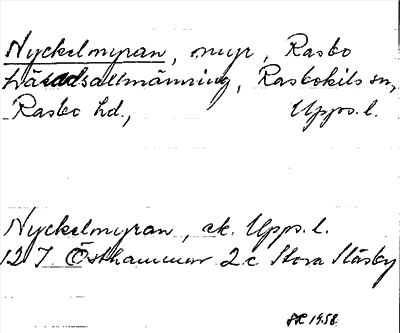 Nyckelmyran, myr, Rasbo
häradsallmänning, Rasbokils sn,
Rasbo hd., Upps. l.
Nyckelmyran, ek. Upps. l.
12 I. Östhammar 2 c Stora Åsby
1958